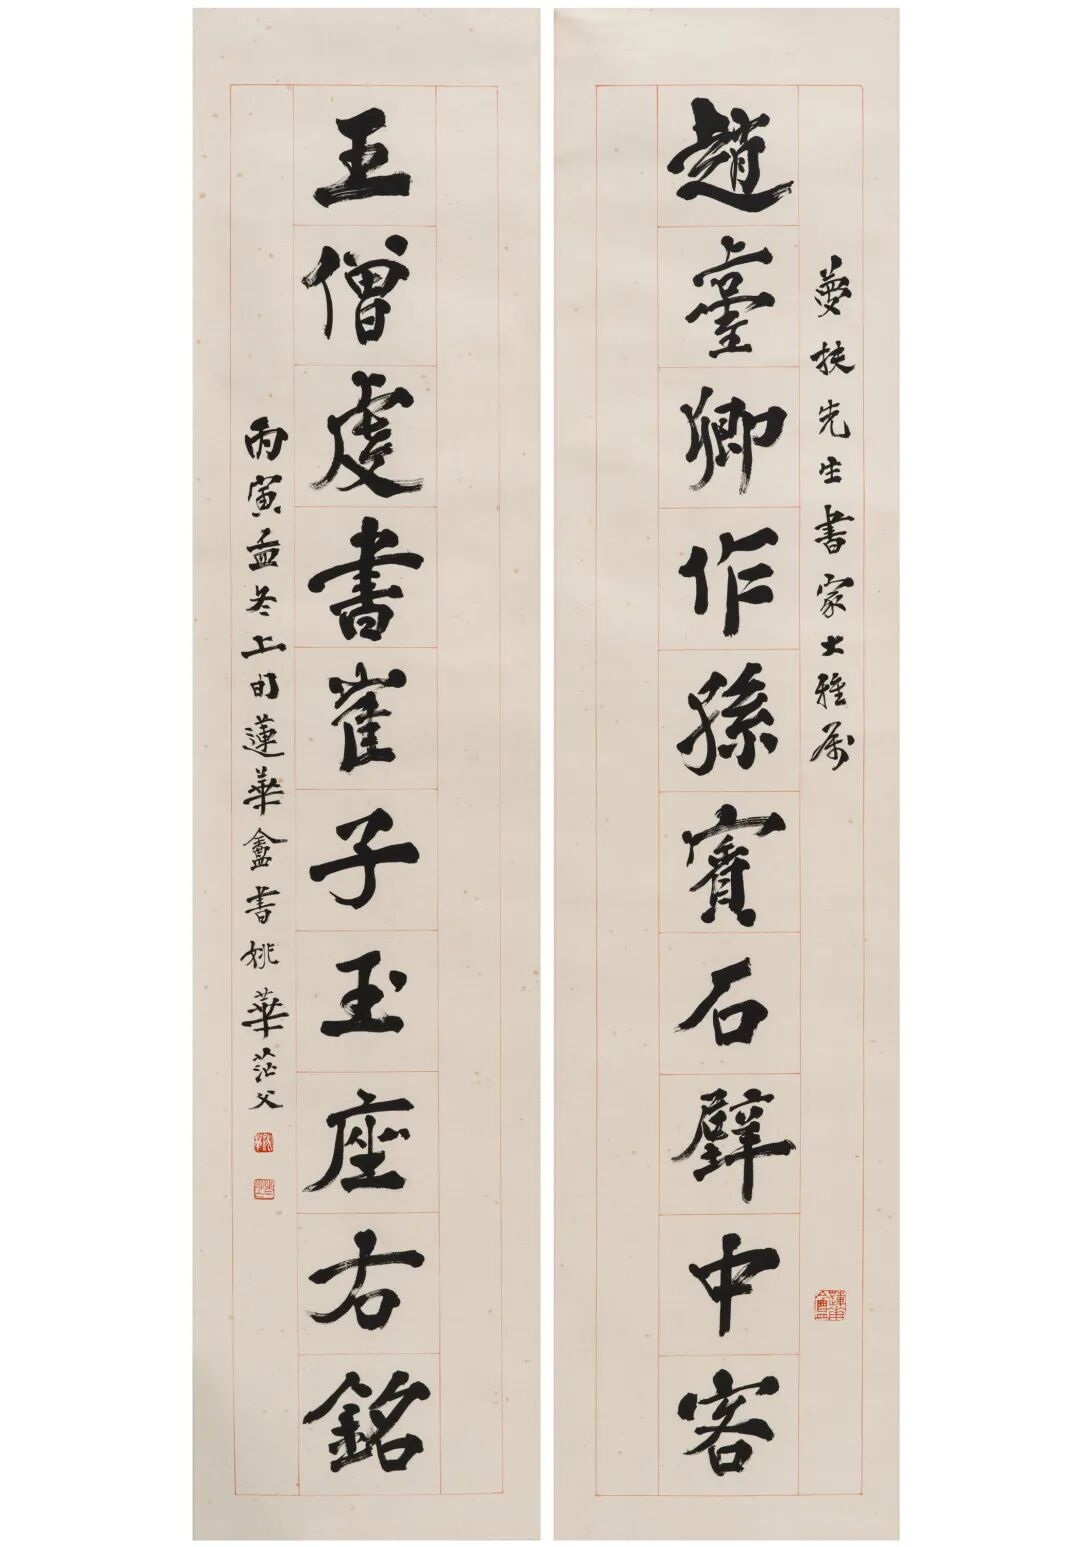 夢扶先生書家大雅屬
趙臺卿作孫賓石壁中客
蓮華盦
王僧虔書崔子玉座右銘
丙寅孟冬上旬蓮華盦書姚華茫父
姚華